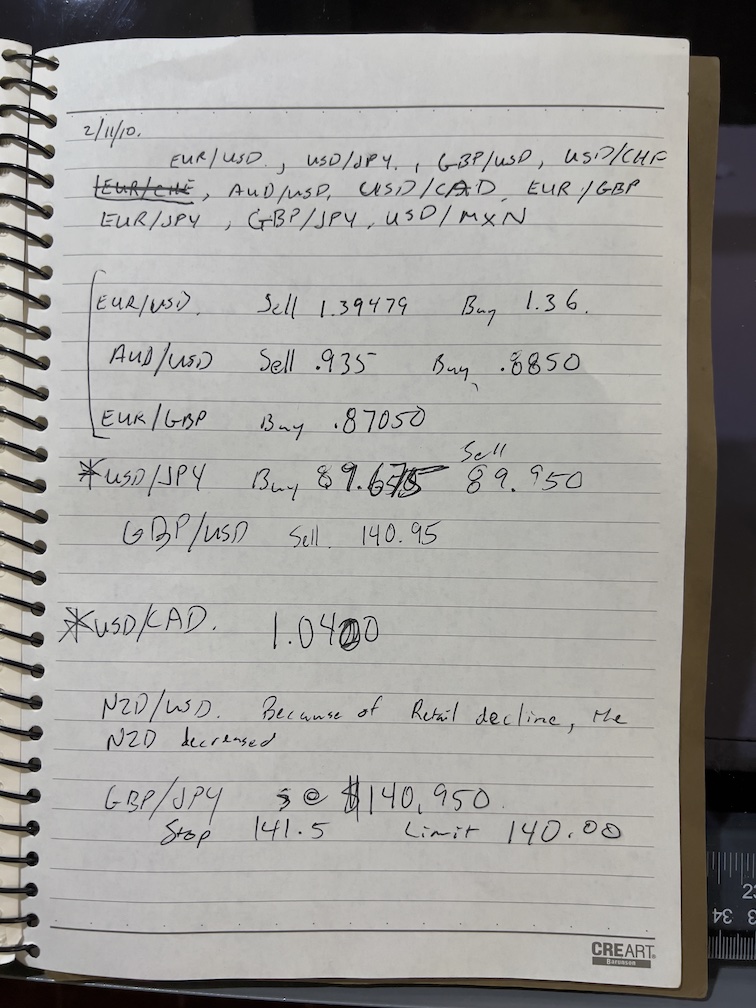 2/11/10.
EUR/USD., USD/JPY., GBP/USD, USD/CHF
EUR/CHF, AUD/USD, USD/CAD, EUR/GBP
EUR/JPY, GBP/JPY, USD/MXN
EUR/USD. Sell 1.39479 Buy 1.36.
AUD/USD Sell .935 Buy .8850
EUR/GBP Buy .87050
Sell
*USD/JPY Buy 89.675 89.950
GBP/USD Sell. 140.95
*USD/CAD. 1.0400
NZD/USD. Because of Retail decline, the
NZD decreased
GBP/JPY S @ $140,950.
Stop 141.5 Limit 140.00
CREART
Baronson
23
34